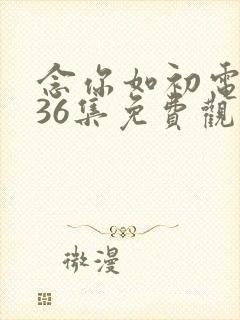 念你如初電
36集免費觀
微漫